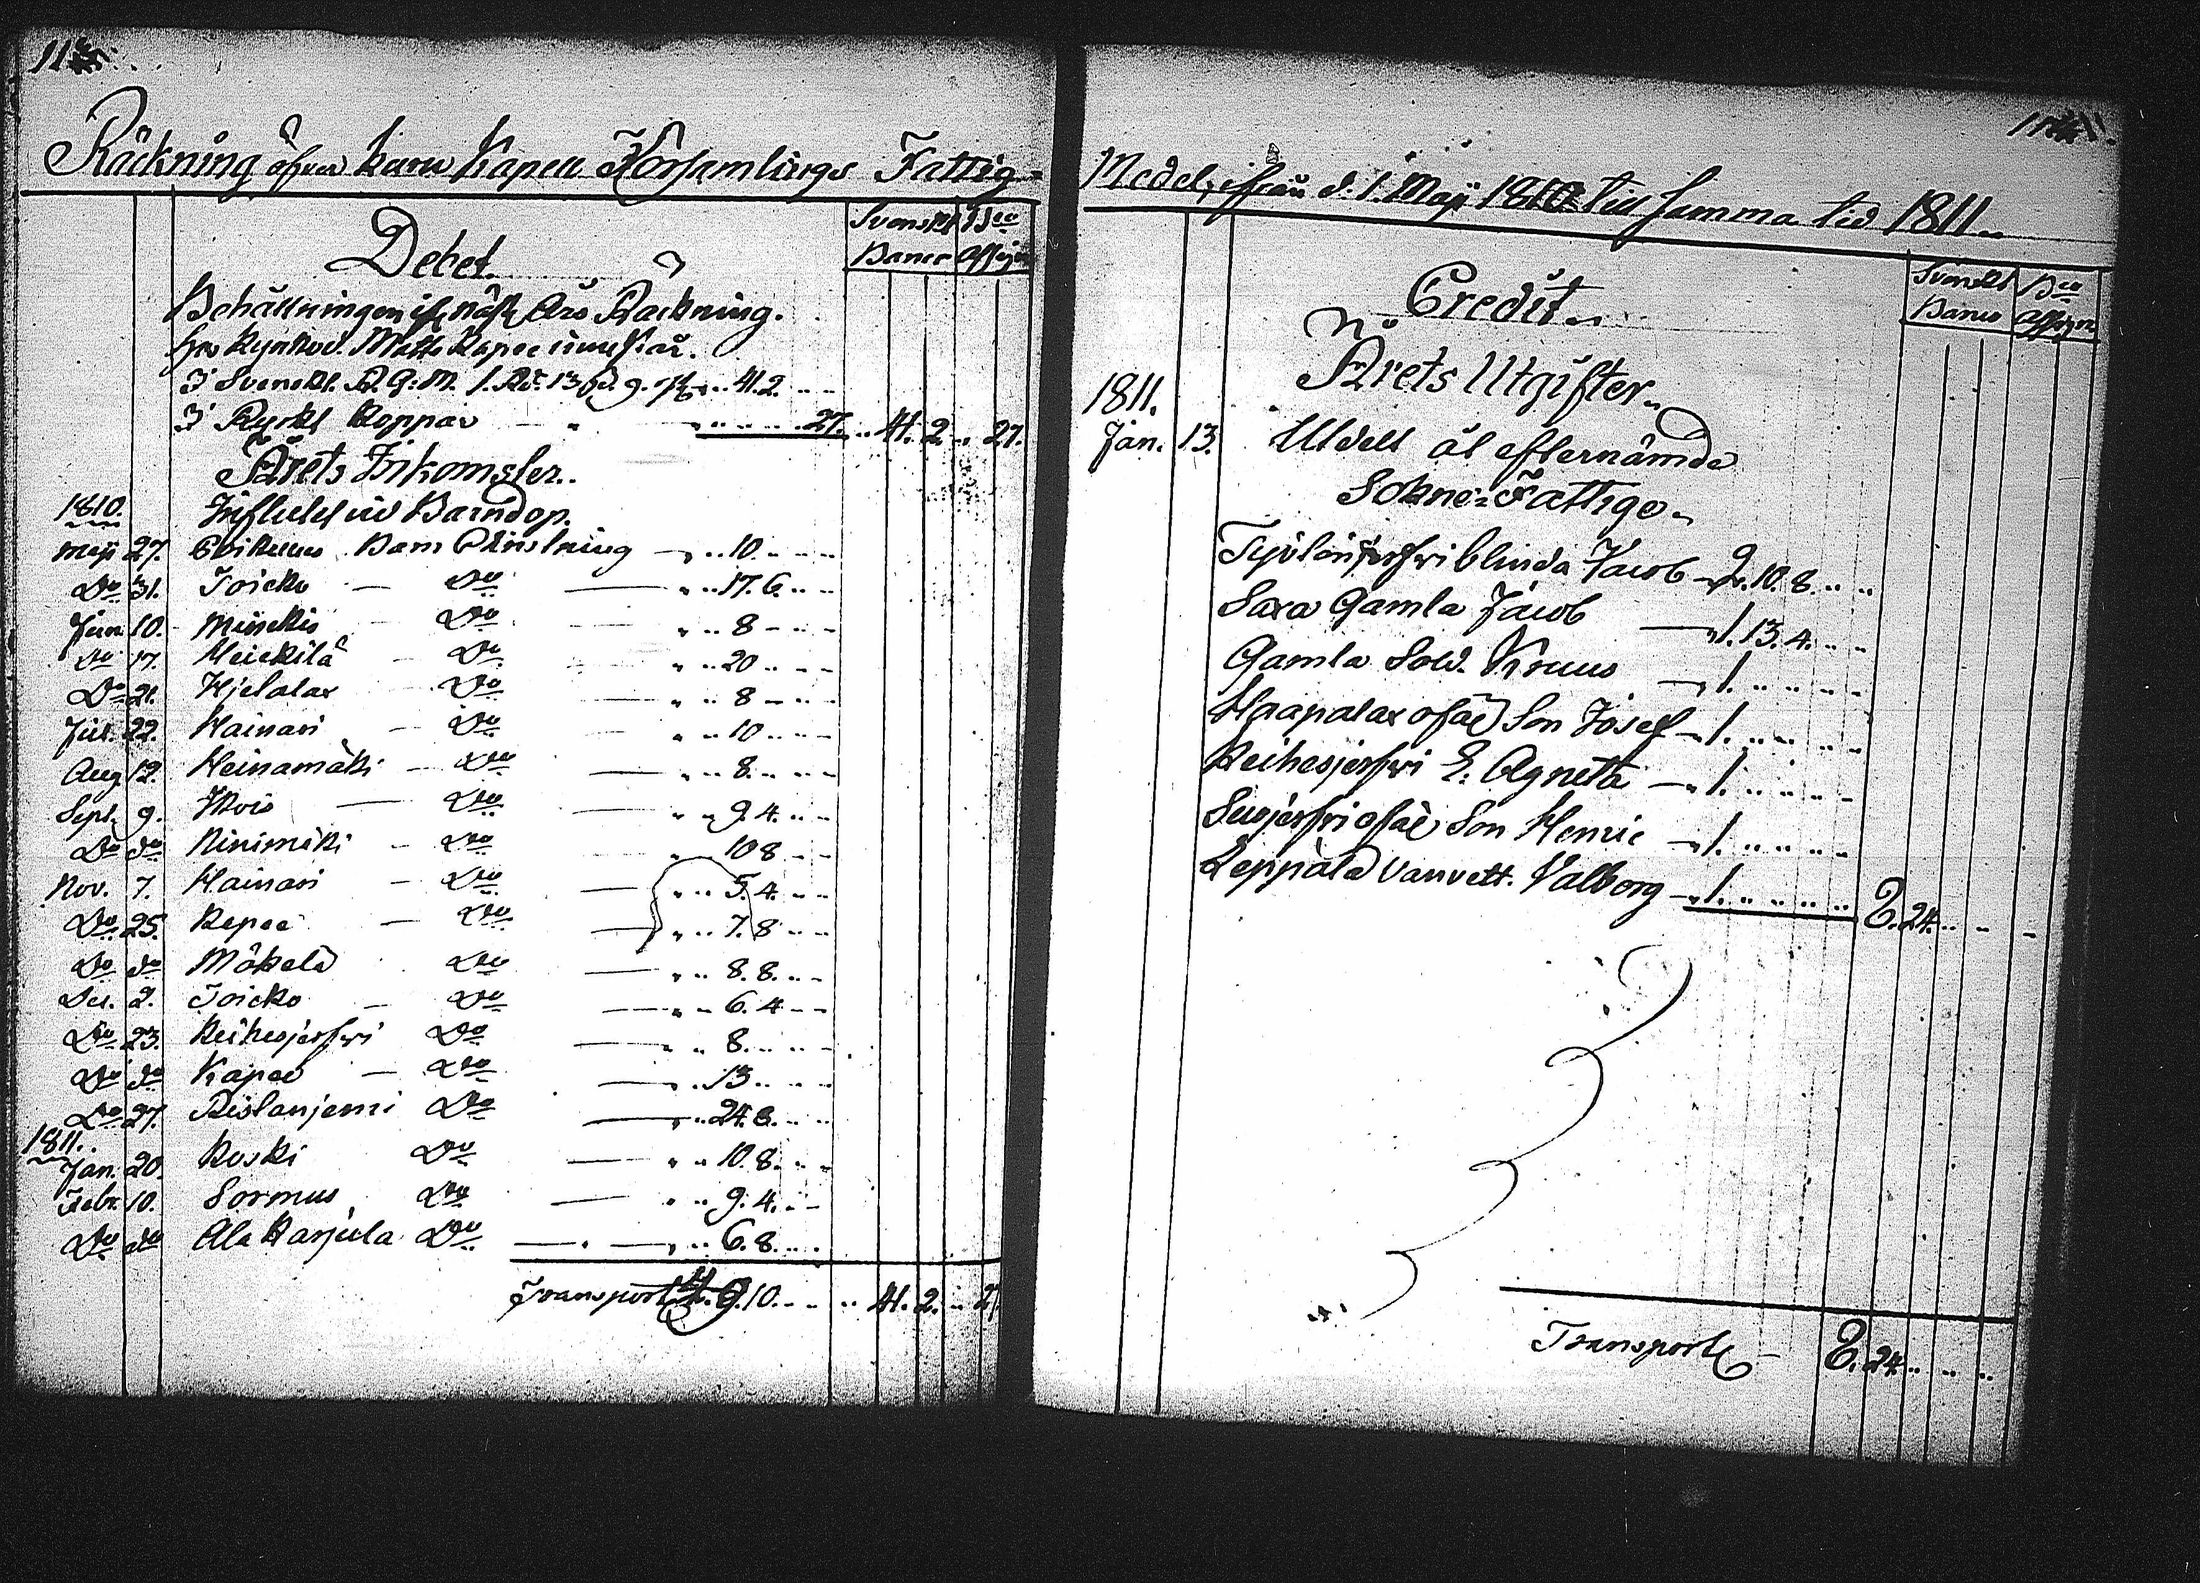 Räckning öfver Karu Kapell Församlings Fattig-
Debet.
Svenskt Bco
Banco Assign
Behållningen ifr. näst. Års Räckning.
Hos Kyrkov. Matts Kapee innestår.
I Svenskt R. G: M. 1. Rd. 13 s. 9. " 41. 2.
I Ryskt Koppar " 27. 41. 2. 27.
Årets Inkomster.
1810. Influtet vid Barndop.
Maji 27. Barn Christning 10
Do 31. Toicko Do 17. 6.
Jun. 10. Do 8
Do 17. Heickilä Do 20
Do 21. Hjelalax Do 8
Jul. 22. Hainari Do 10
Aug 12. Heinamäki Do 8.
Sept. 9. Do 9. 4.
Do do Ninimäki Do 10 8
Nov. 7. Hainari Do 5. 4.
Do 25. Do 7. 8
Do do Mäkelä Do 8. 8.
Dec. 2. Toicko Do 6. 4
Do 23. Keihesjerfwi Do 8.
Do do Kapee Do 13
Do 27. Ristaniemi Do 24. 8.
1811.
Jan. 20. Koski Do 10. 8.
Febr. 10. Sormus Do 9. 4.
Do do Ala Karjula Do 6. 8.
Transport 9. 10. 41. 2. 27
Medel, ifrån d. 1. Maji 1810 till samma tid 1811.
Credit.
Svenskt Bco
Banco Assign
Årets Utgifter.
1811.
Jan. 13. Utdelt åt efternämde
Sokne-Fattige.
blinda Jacob 2. 10. 8.
Saxa Gamla Jacob 1. 13. 4.
Gamla Sold. Kruus 1.
Haapalax ofär. Son Josef 1.
Keihesjerfwi E. Agneta 1.
Susjerfwi ofär. Son Henric 1.
Leppälä Vanvett. Valborg 1. 8. 24.
Transport 8. 24.